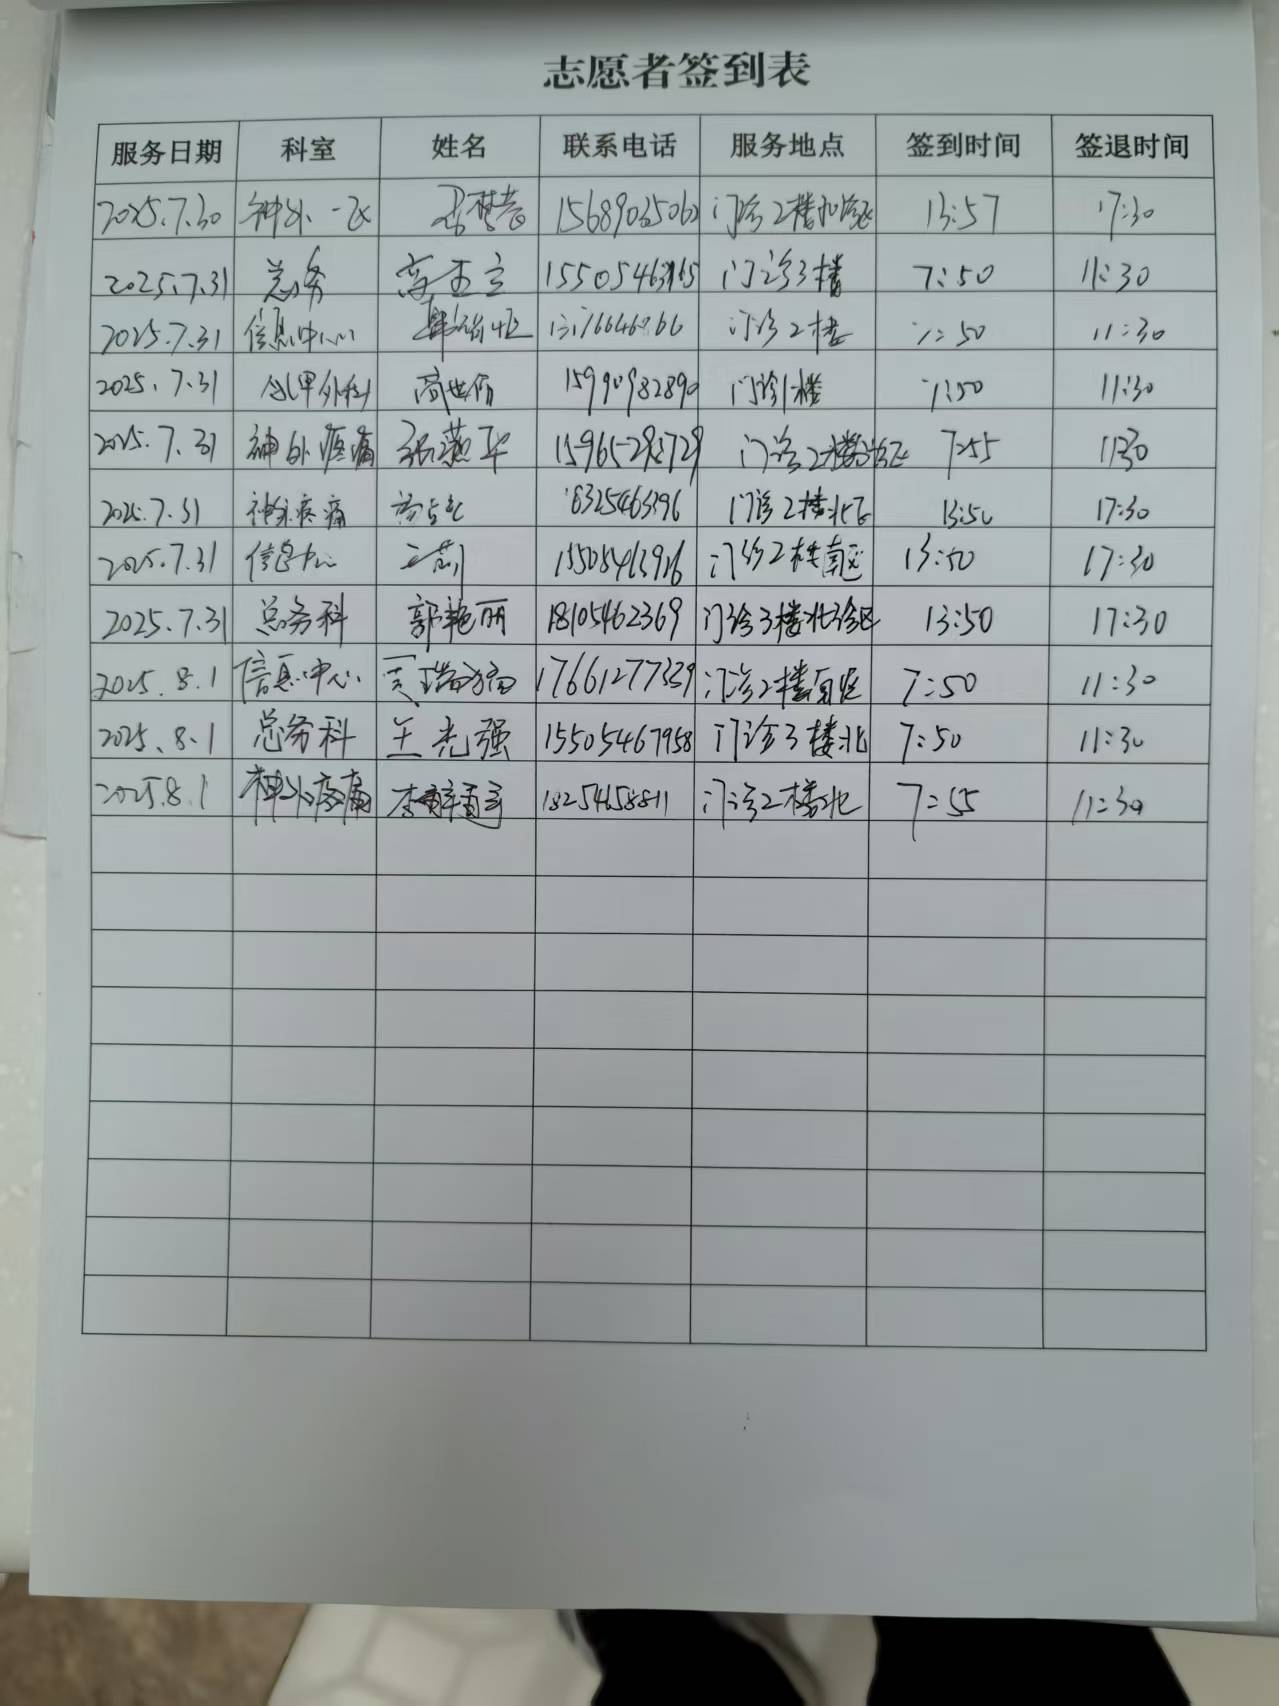 志愿者签到表
服务日期 科室 姓名 联系电话 服务地点 签到时间 签退时间
2025.7.30 神外一区 15689025062 门诊2楼北诊区 13:57 17:30
2025.7.31 总务 门诊3楼 7:50 11:30
2025.7.31 信息中心 门诊2楼 7:50 11:30
2025.7.31 外科 15990982890 门诊1楼 7:50 11:30
2025.7.31 神外疼痛 张燕华 门诊2楼 7:55 11:30
2025.7.31 神外疼痛 门诊2楼北区 13:50 17:30
2025.7.31 信息中心 15505463916 门诊2楼南区 13:50 17:30
2025.7.31 总务科 郭艳丽 18105462369 门诊3楼北诊区 13:50 17:30
2025.8.1 信息中心 17661277339 门诊2楼南区 7:50 11:30
2025.8.1 总务科 王光强 15505467958 门诊3楼北 7:50 11:30
2025.8.1 神外疼痛 18254658811 门诊2楼北 7:55 11:30